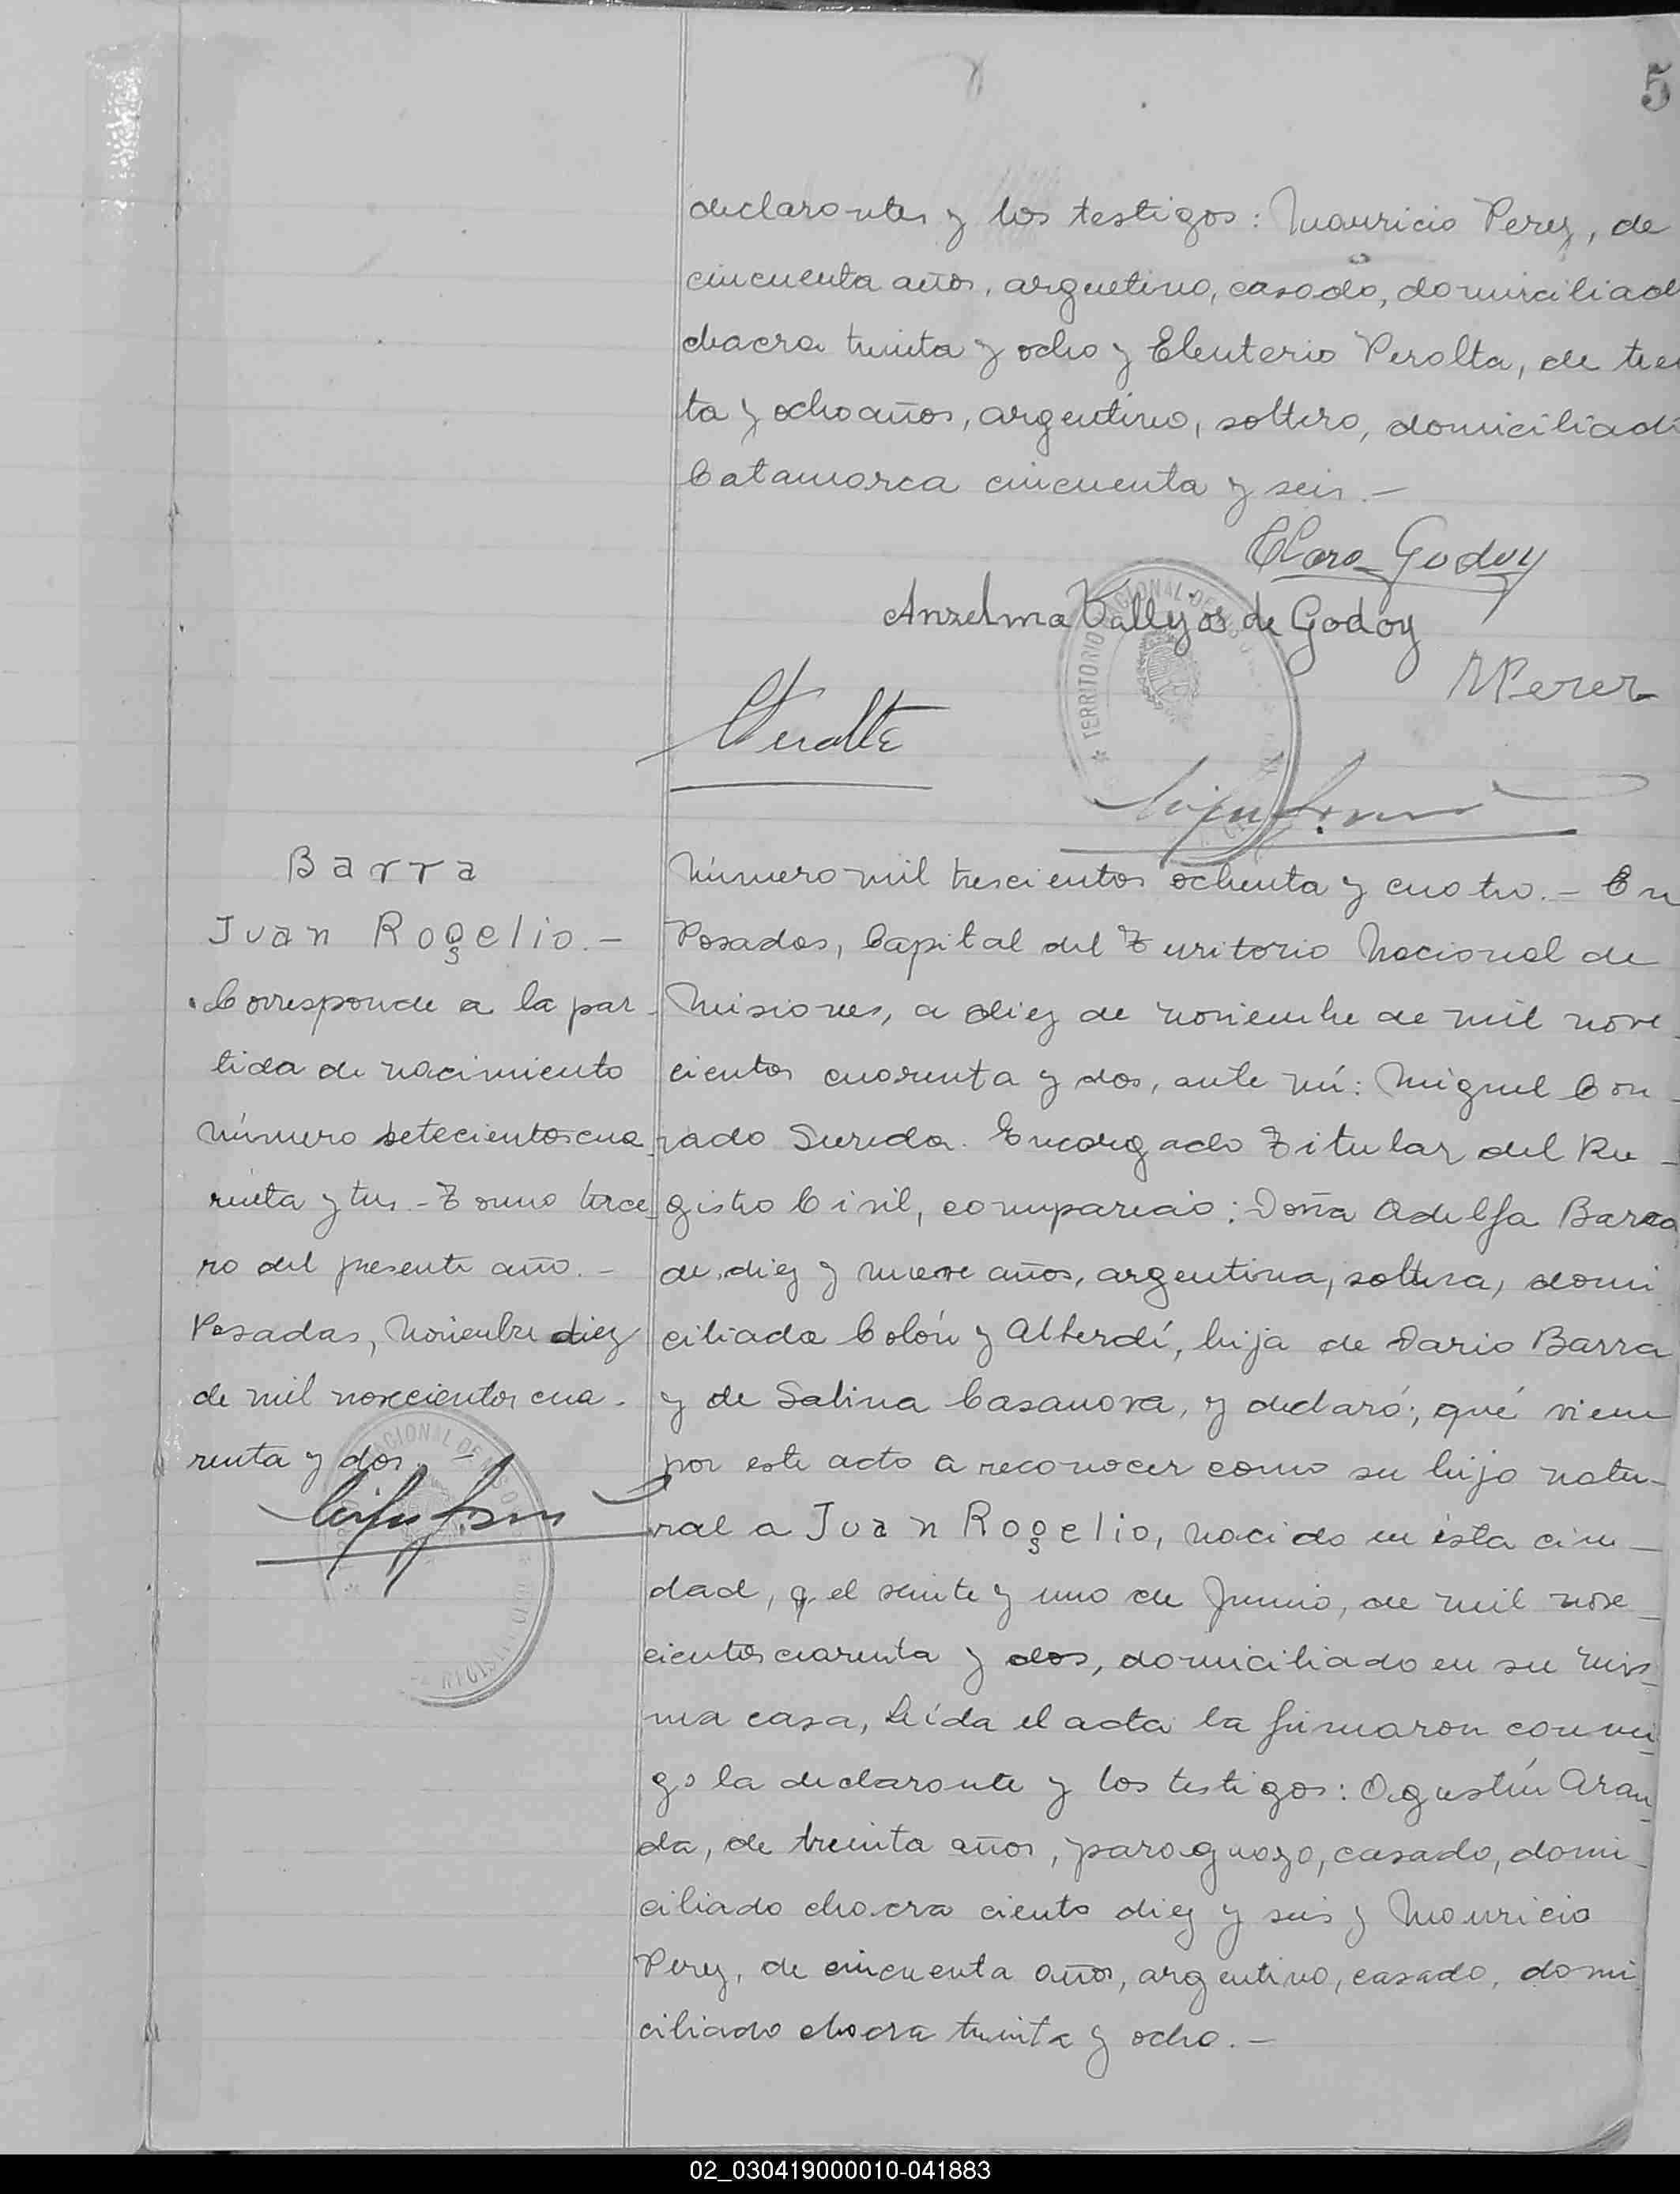 5
declarantes y los testigos: Mauricio Perez, de
cincuenta años, argentino, casado, domiciliado
chacra treinta y ocho y Eleuterio Peralta, de trein
ta y ocho años, argentino, soltero, domiciliado
Catamarca cincuenta y seis.—
Claro Godoy
Anzelma Vallejos de Godoy
MPerez
Peralta
TERRITORIO NACIONAL DE
Barra
Juan Rogelio.—
Corresponde a la par-
tida de nacimiento
número setecientos cua-
renta y tres - Tomo terce-
ro del presente año.—
Posadas, Noviembre diez
de mil novecientos cua-
renta y dos.—
NACIONAL DE MISIONES
Número mil trescientos ochenta y cuatro.— En
Posadas, Capital del Territorio Nacional de
Misiones, a diez de noviembre de mil nove-
cientos cuarenta y dos, ante mí: Miguel Con-
rado Sureda. Encargado Titular del Re-
gistro Civil, compareció: Doña Adelfa Barra
de diez y nueve años, argentina, soltera, domi
ciliada Colón y Alberdí, hija de Dario Barra
y de Salina Casanova, y declaró; qué viene
por este acto a reconocer como su hijo natu-
ral a Juan Rogelio, nacido en ésta ciu-
dad, el veinte y uno de Junio, de mil nove-
cientos cuarenta y dos, domiciliado en su mis-
ma casa, Leída el acta la firmaron conmi-
go la declarante y los testigos: Agustín Aran-
da, de treinta años, paraguayo, casado, domi-
ciliado chacra ciento diez y seis y Mauricio
Perez, de cincuenta años, argentino, casado, domi
ciliado chacra treinta y ocho.—
02_030419000010-041883